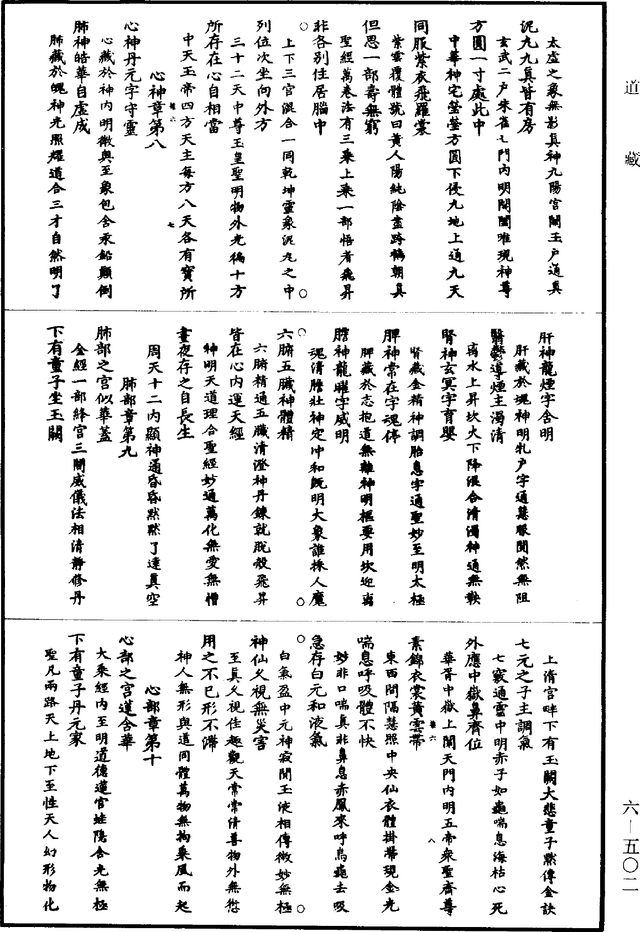 道藏
太虛之象無影真神九陽宮闕玉戶通真
泥丸九真皆有房
玄武二戶朱雀七門內明閫闔唯現神尊
方圓一寸處此中
中華神定瑩瑩方圓下侵九地上通九天
同服紫衣飛羅裳
紫雲覆體號曰黃人陽純陰盡跨鶴朝真
但思一部壽無窮
聖經萬卷法有三乘上乘一部悟者飛昇
非各別住居腦中
上下三宮混合一同乾坤靈象泥丸之中
列位次坐向外方
三十二天中尊玉皇聖明物外光徧十方
所存在心自相當
中天玉帝四方天主每方八天各有寶所
卷六
七
心神章第八
心神丹元字守靈
心藏於神內明微與至象包含汞鉛顛倒
肺神皓華自虛成
肺藏於魄神光照耀道合三才自然明了
肝神龍煙字含明
肝藏於魂神明札戶字通慧眼聞然無阻
翳鬱導煙主濁清
离水上昇坎火下降混合清濁神通無鞅
腎神玄冥字育嬰
腎藏金精神調胎息字通聖妙至明太極
脾神常在字魂停
脾藏於志抱道無離神明樞要用坎迎离
膽神龍曜字威明
魂清膽壯神定冲和旣明大象誰採人魔
六腑五臟神體精
六腑精通五臟清澄神丹鍊就脫殼飛昇
皆在心內運天經
神明天道理合聖經妙通萬化無愛無憎
晝夜存之自長生
周天十二內顯神通昏昏默默了達真空
肺部章第九
肺部之宮似華蓋
金經一部絳宮三關威儀法相清靜修丹
下有童子坐玉闕
上清宮畔下有玉闕大悲童子默傳金訣
七元之子主調氣
七竅通靈中明赤子如龜喘息海枯心死
外應中嶽鼻齊位
華蓋中嶽上闢天門內明五帝衆聖齊尊
素錦衣裳黃雲帶
卷六
八
東西間隔慧照中央仙衣體掛帶現金光
喘息呼吸體不快
妙非口喘真非鼻息赤鳳來呼烏龜去吸
急存白元和液氣
白氣盈中元神寂閒玉液相傳微妙無極
神仙久視無災害
至真久視佳趣觀天常常清善物外無愆
用之不已形不滯
神人無形與道同體萬物無拘乘風而起
心部章第十
心部之宮蓮含華
大乘經內至明道德蓮宮蛙隱含光無極
下有童子丹元家
聖凡兩路天上地下至性天人幻形物化
六—五〇二